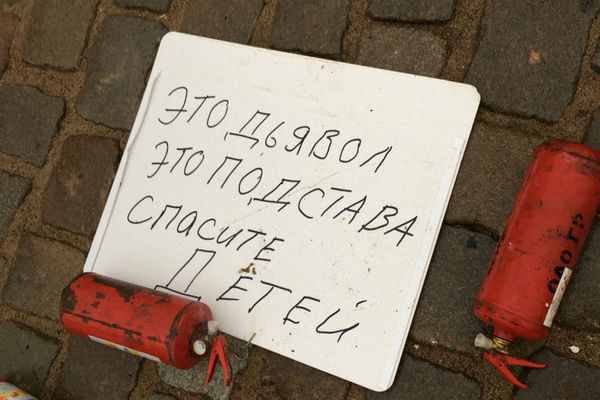 ЭТО ДЬЯВОЛ
ЭТО ПОДСТАВА
СПАСИТЕ
ДЕТЕЙ